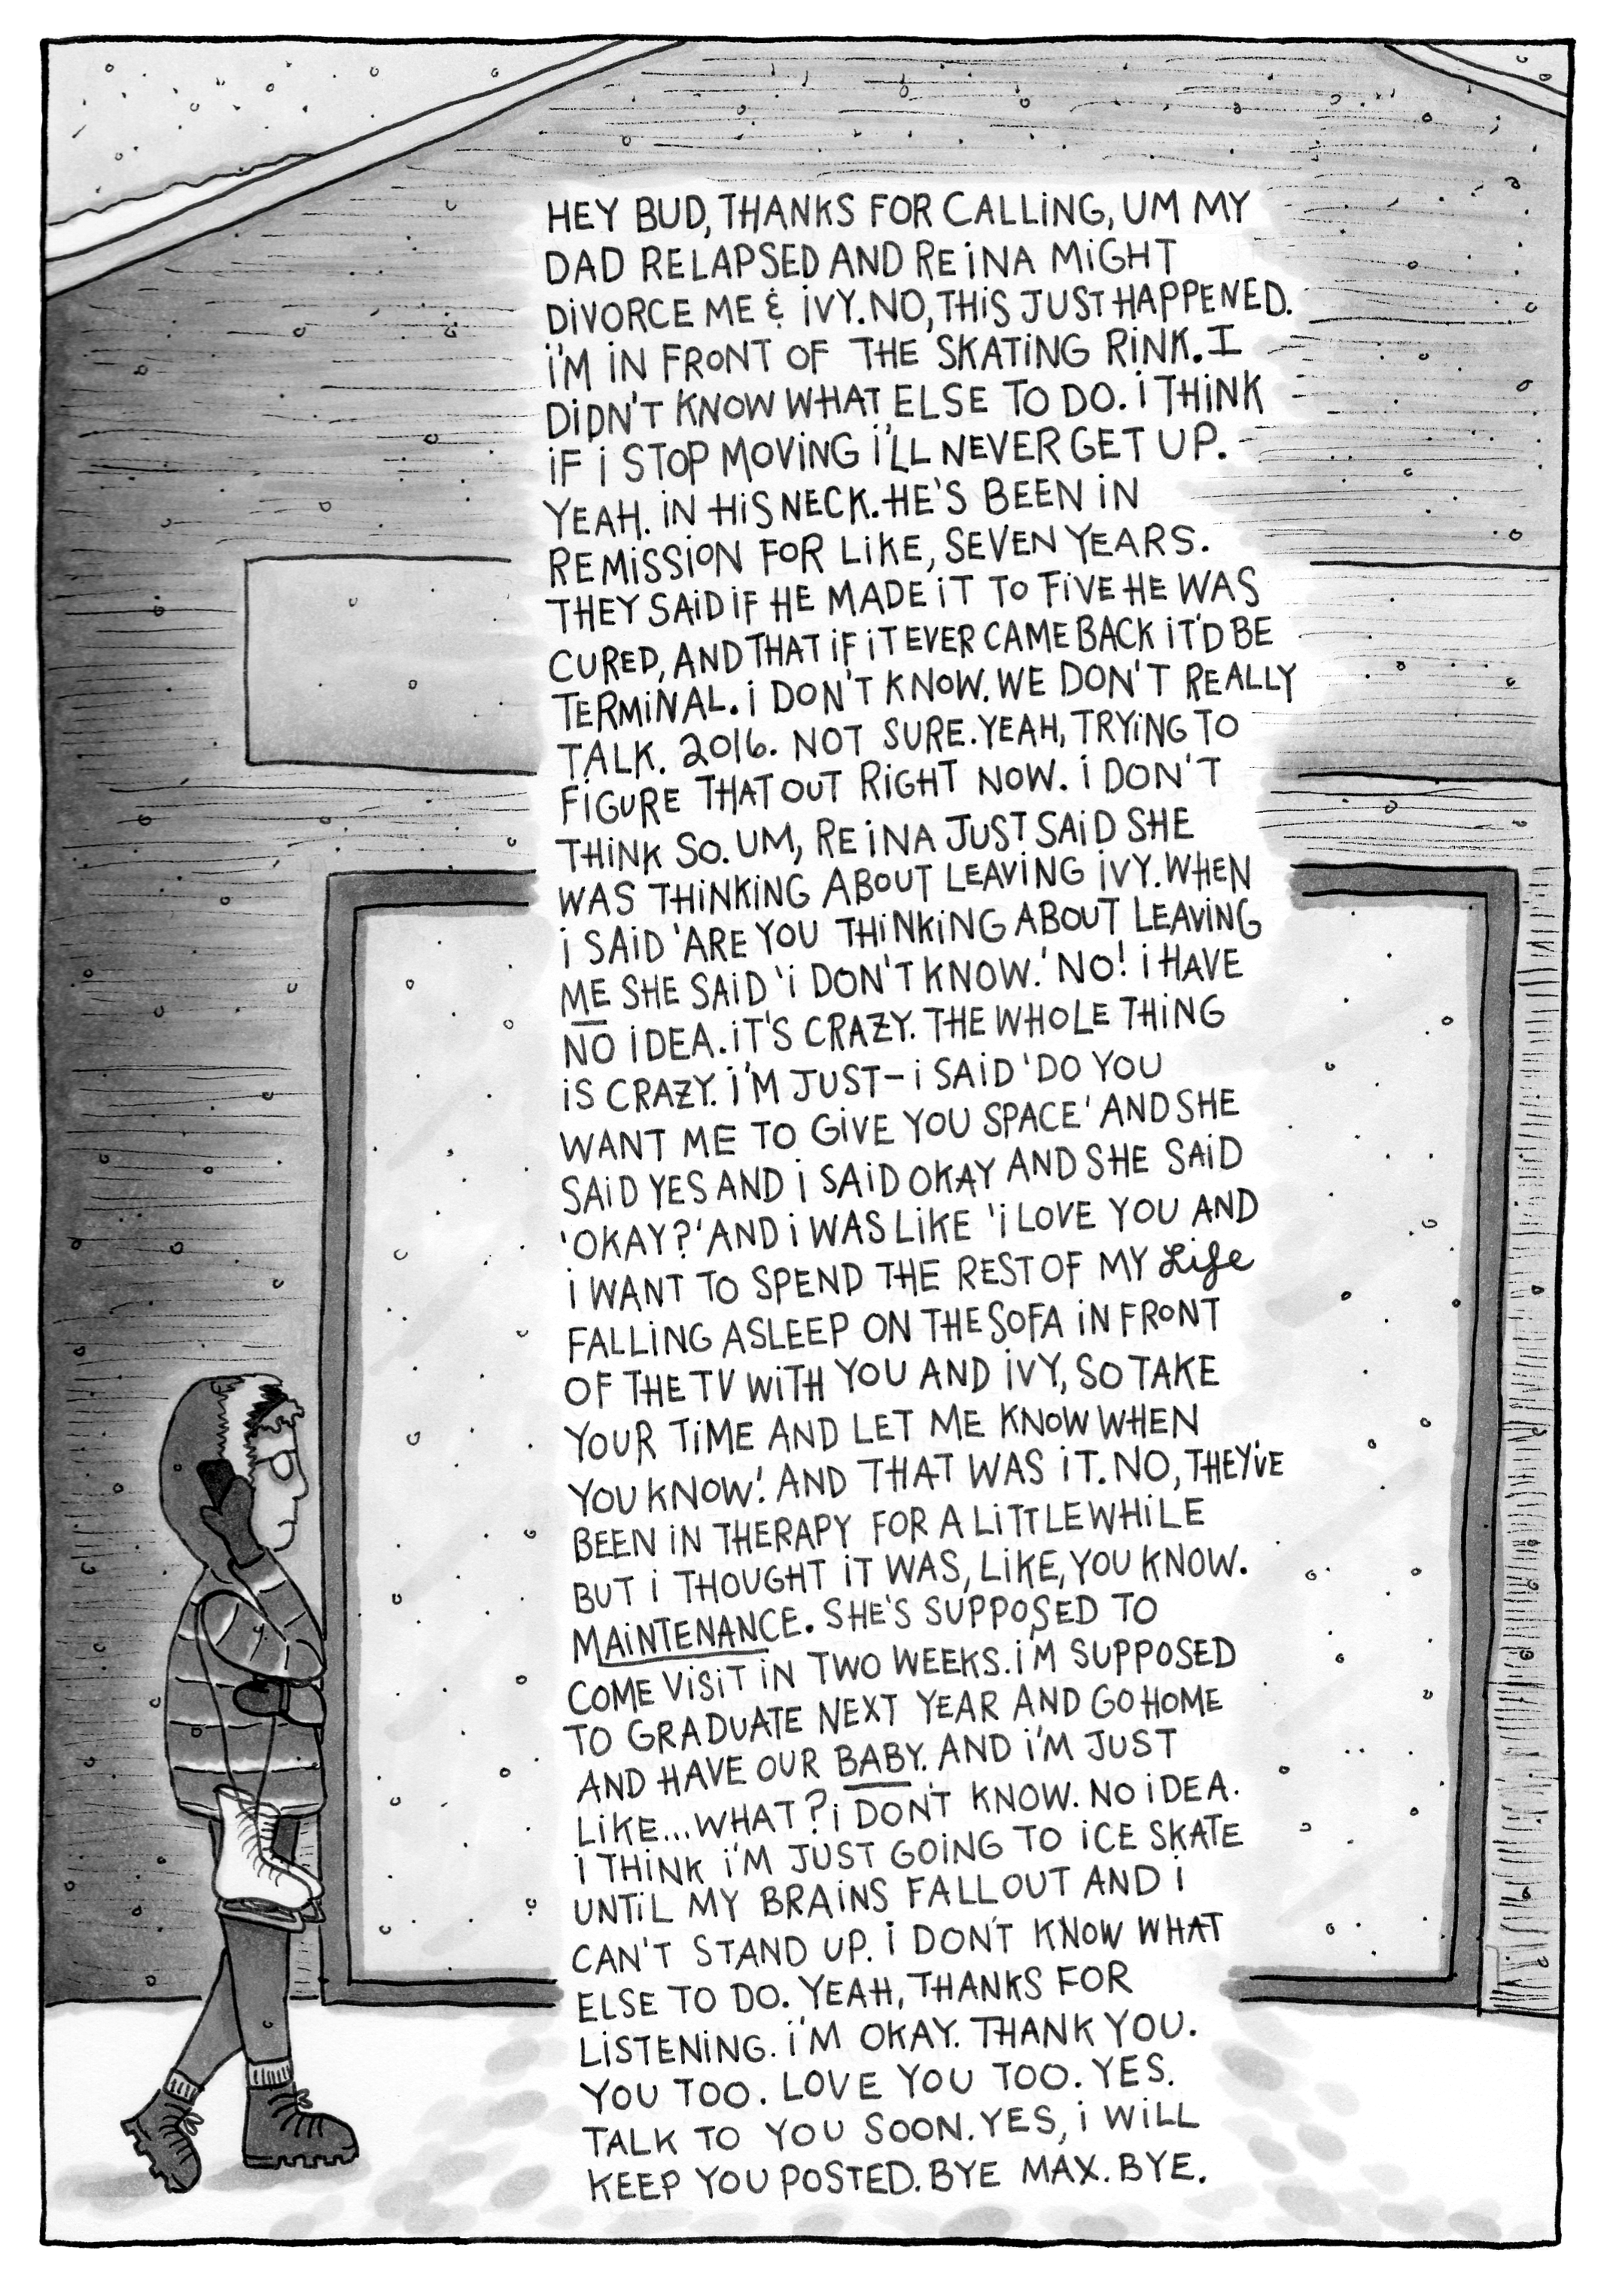 HEY BUD, THANKS FOR CALLING, UM MY
DAD RELAPSED AND REINA MIGHT
DIVORCE ME & IVY. NO, THIS JUST HAPPENED.
I'M IN FRONT OF THE SKATING RINK. I
DIDN'T KNOW WHAT ELSE TO DO. I THINK
IF I STOP MOVING I'LL NEVER GET UP.
YEAH. IN HIS NECK. HE'S BEEN IN
REMISSION FOR LIKE, SEVEN YEARS.
THEY SAID IF HE MADE IT TO FIVE HE WAS
CURED, AND THAT IF IT EVER CAME BACK IT'D BE
TERMINAL. I DON'T KNOW. WE DON'T REALLY
TALK. 2016. NOT SURE. YEAH, TRYING TO
FIGURE THAT OUT RIGHT NOW. I DON'T
THINK SO. UM, REINA JUST SAID SHE
WAS THINKING ABOUT LEAVING IVY. WHEN
I SAID 'ARE YOU THINKING ABOUT LEAVING
ME SHE SAID 'I DON'T KNOW.' NO! I HAVE
NO IDEA. IT'S CRAZY. THE WHOLE THING
IS CRAZY. I'M JUST- I SAID 'DO YOU
WANT ME TO GIVE YOU SPACE' AND SHE
SAID YES AND I SAID OKAY AND SHE SAID
'OKAY?' AND I WAS LIKE 'I LOVE YOU AND
I WANT TO SPEND THE REST OF MY Life
FALLING ASLEEP ON THE SOFA IN FRONT
OF THE TV WITH YOU AND IVY, SO TAKE
YOUR TIME AND LET ME KNOW WHEN
YOU KNOW.' AND THAT WAS IT. NO, THEY'VE
BEEN IN THERAPY FOR A LITTLE WHILE
BUT I THOUGHT IT WAS, LIKE, YOU KNOW.
MAINTENANCE. SHE'S SUPPOSED TO
COME VISIT IN TWO WEEKS. I'M SUPPOSED
TO GRADUATE NEXT YEAR AND GO HOME
AND HAVE OUR BABY. AND I'M JUST
LIKE... WHAT? I DON'T KNOW. NO IDEA.
I THINK I'M JUST GOING TO ICE SKATE
UNTIL MY BRAINS FALL OUT AND I
CAN'T STAND UP. I DON'T KNOW WHAT
ELSE TO DO. YEAH, THANKS FOR
LISTENING. I'M OKAY. THANK YOU.
YOU TOO. LOVE YOU TOO. YES.
TALK TO YOU SOON. YES, I WILL
KEEP YOU POSTED. BYE MAX. BYE.